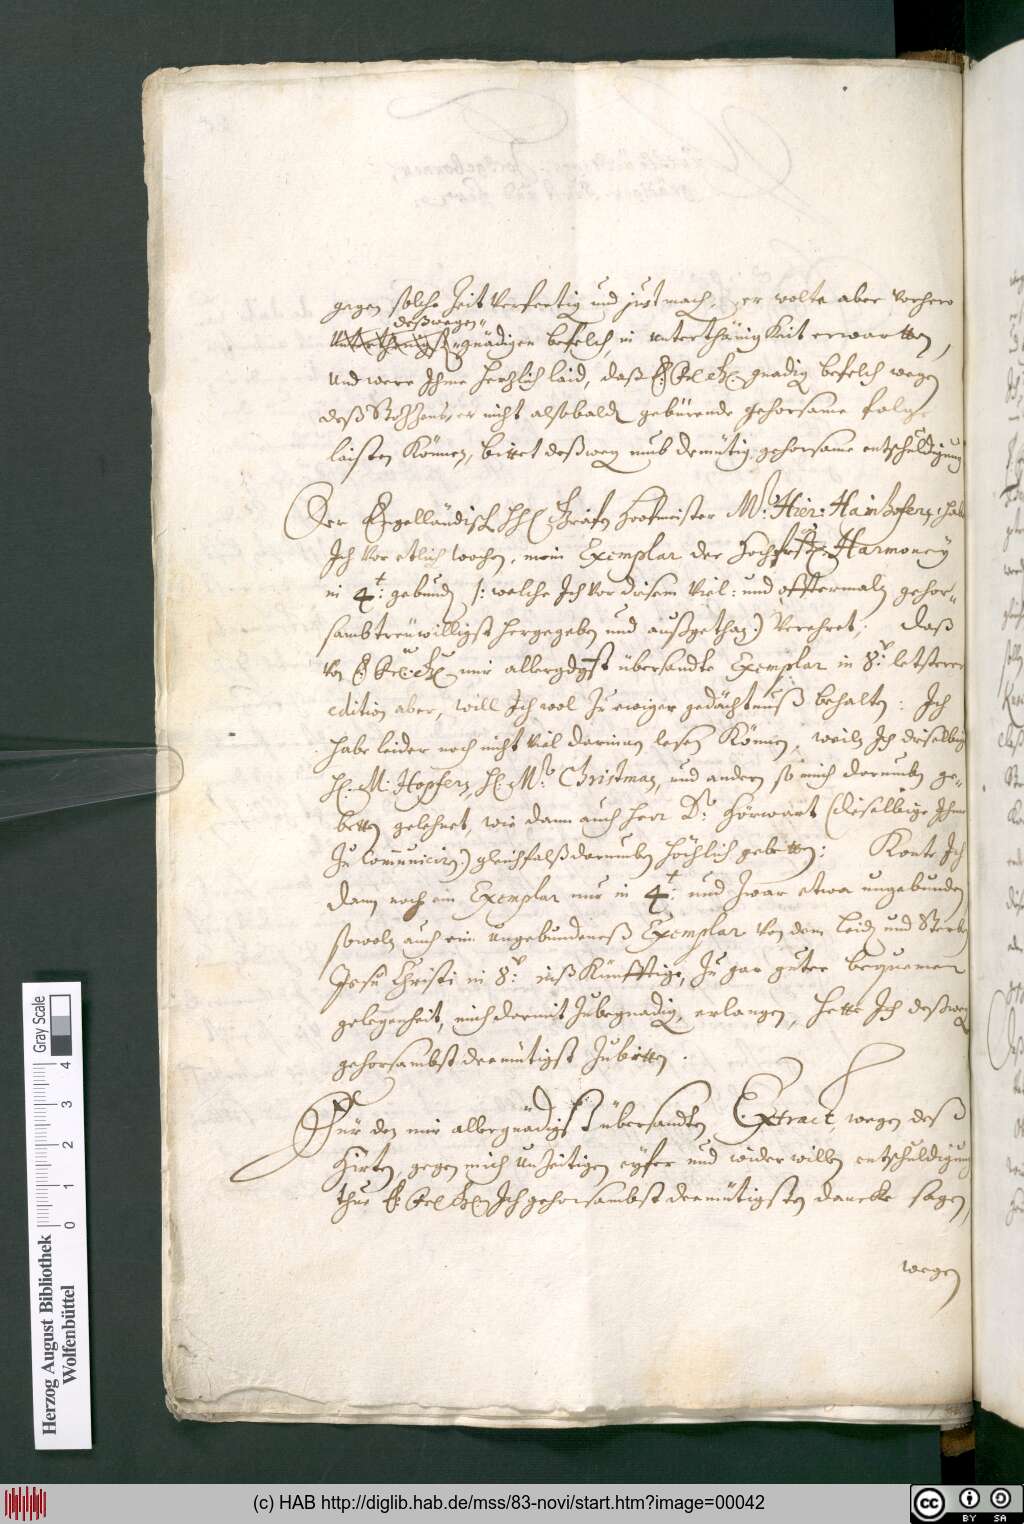 gegen solche Zeit verfertig und just mach, er wolte aber vorhero
deßwegen
underthenigst gnädigen befelch, in unterthänigkeit erwartten,
und were Ihme herzlich laid, daß gnadig befelch wegen
deß er nicht alsobalden gebürende gehorsame folge
laisten können, bittet deßwegen umb demütig gehorsame entschuldigung
Der Engelländisch Gräfin Hoofmeister Mr: Hier: Hainhofern, hab
Ich vor etlich wochen, mein Exemplar der Harmoney
in 4t: gebunden /: welche Ich vor diesem viel: und offtermaln gehor-
samb treuwilligst hergegeben und außgethan:/ verehret; daß
von mir allergdgst übersandte Exemplar in 8v: letsterer
edition aber, will Ich wol zu ewiger gedächtnuß behalten: Ich
habe leider noch nicht viel darinnen lesen können, weiln Ich dieselbig
H: M: Hopfern, H: Mr: Christman, und andern so mich darumben ge-
betten gelehnet, wie dann auch Herr Dr: Hörwart (dieselbige Ihme
zu Communiciren:) gleichfalß darumben höchlich gebetten: Konte Ich
dann noch ein Exemplar nur in 4t: und zwar etwa ungebunden,
sowoln auch ein ungebundeneß Exemplar von dem Leiden und Sterben
Jesu Christi in 8v: inß Künfftige, zu gar guter bequemen
gelegenheit, mich darmit zubegnadig, erlangen, hette Ich deßwegen
gehorsambst deemütigst zubitten.
Für den mir allergnädigst übersandten Extract, wegen deß
Hirten, gegen mich unzeitigen eyfer und widerwillen entschuldigung
thue Ich gehorsambst deemütigsten dancke sagen,
wegen
Gray Scale
0 1 2 3 4
Herzog August Bibliothek
Wolfenbüttel
(c) HAB http://diglib.hab.de/mss/83-novi/start.htm?image=00042
cc BY SA